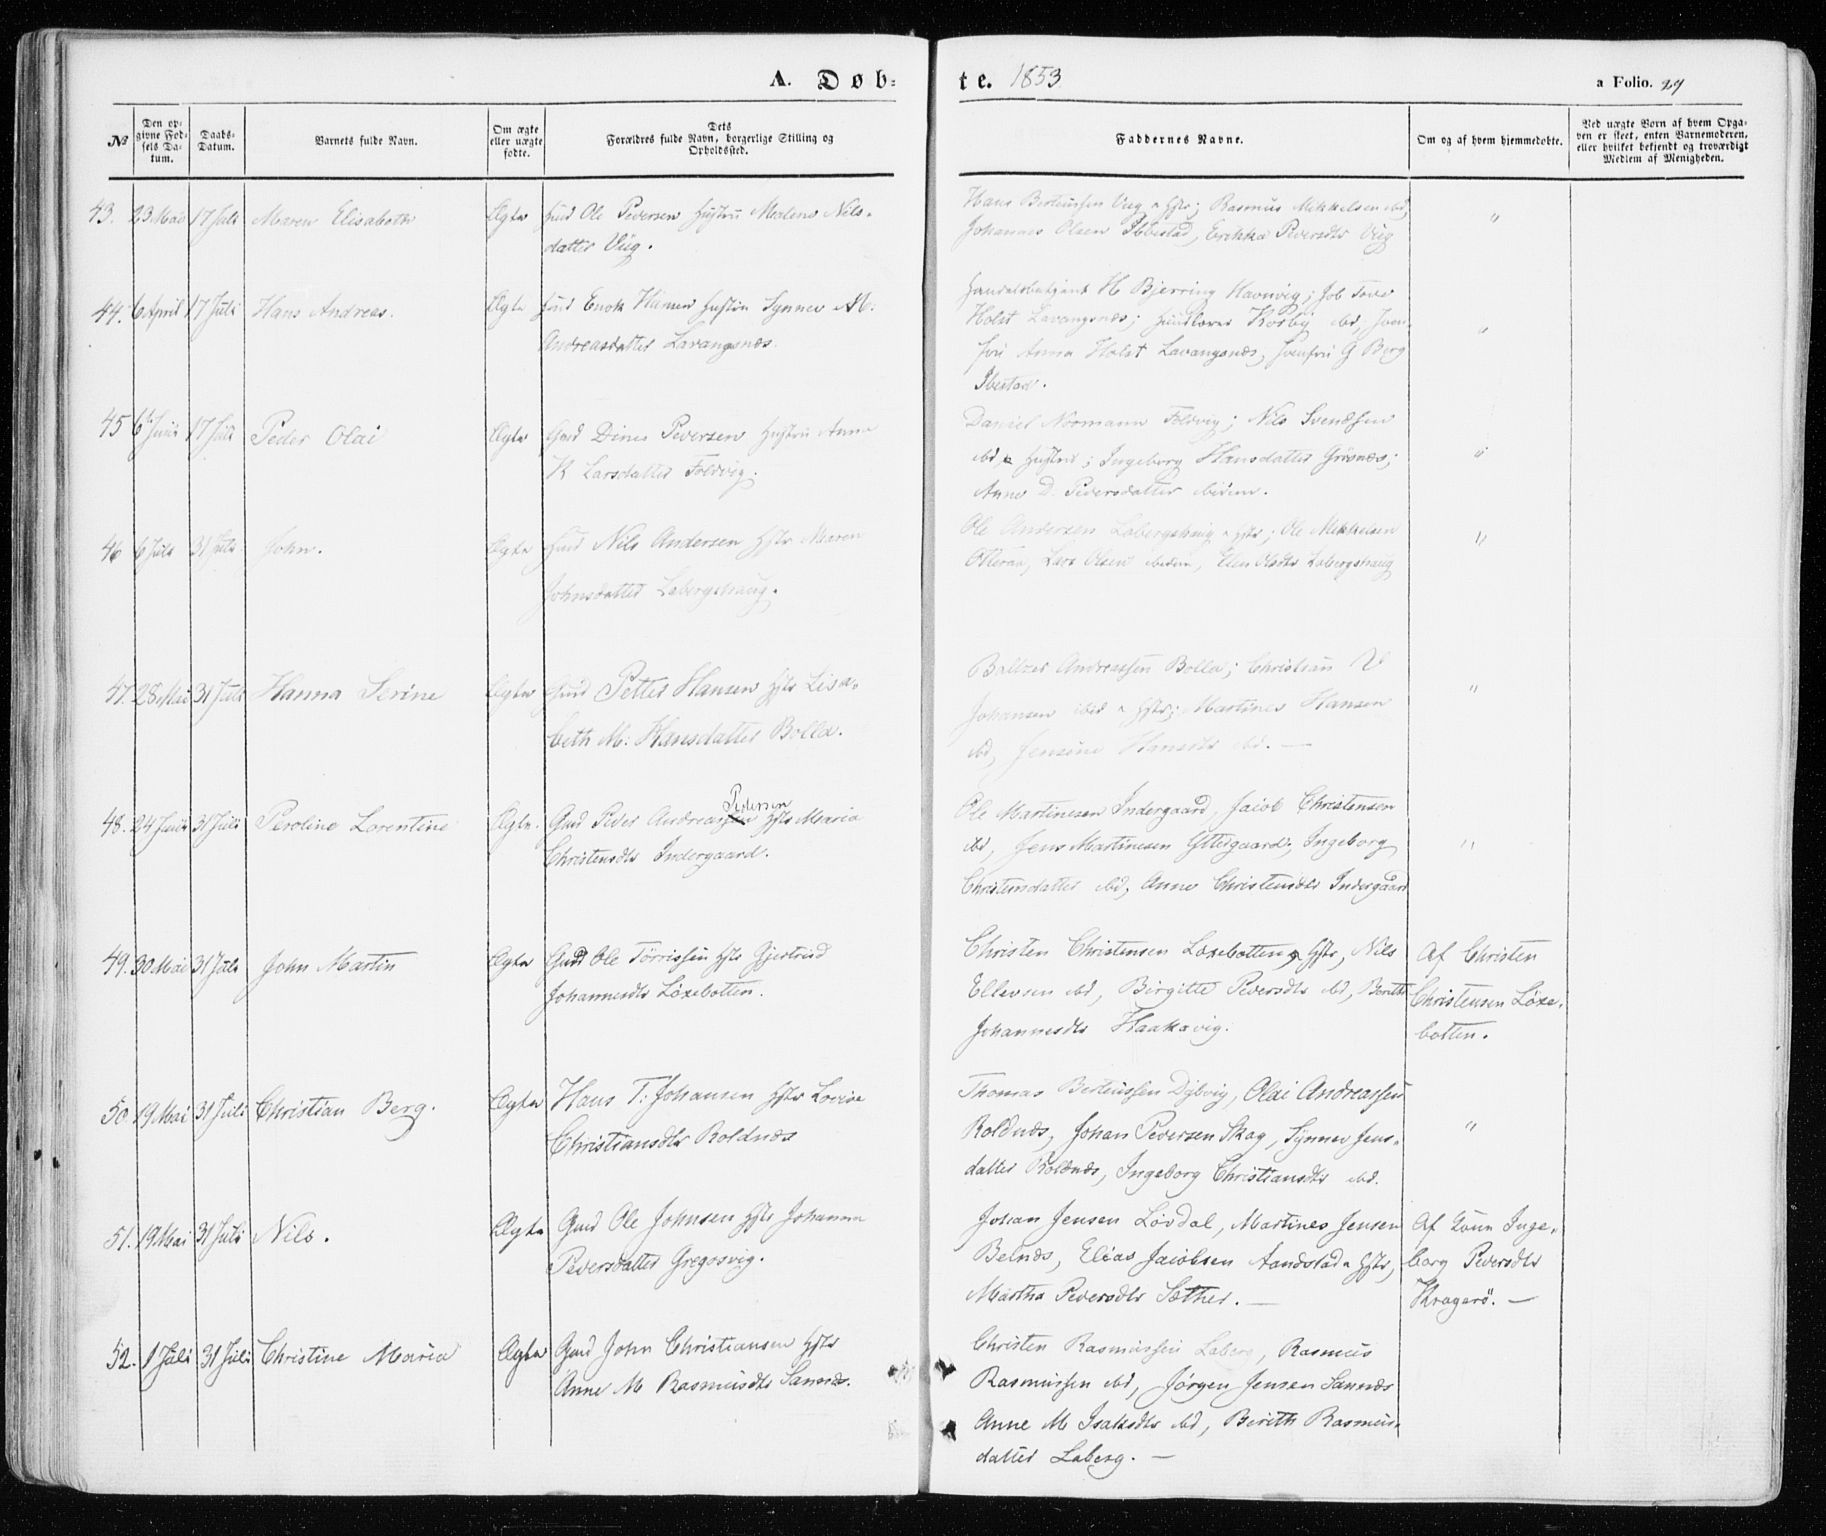 A. Døb-
te. 1853
a Folio. 29
No
Den opgivne Fødsels Datum.
Daabs-Datum.
Barnets fulde Navn.
Om ægte eller uægte fødte.
Dets Forældres fulde Navn, borgerlige Stilling og Opholdssted.
Faddernes Navne.
Om og af hvem hjemmedøbte.
Ved uægte Barn af hvem Opgaven er skeet, enten Barnemoderen, eller hvilket bekjendt og troværdigt Medlem af Menigheden.
43. 23 Mai 17 Juli Maren Elisabeth Ægte Ole Pedersen Hustru Malene Nils-
datter Viig.
Hans Berteussen Viig Hstr; Rasmus Mikkelsen ibd,
Johannes Olsen Ibbestad, Erikka Pedersdtr Viig
"
44. 6 April 17 Juli Hans Andreas. Ægte Enok Hustru Synnev M:
Andreasdatter Lavangsnæs.
H Bjerring Havnvig; Job Tove
Holst Lavangsnæs; Korsby ibd, Jom-
fru Anna Holst Lavangsnæs, Jomfru G Berg
Ibestad.
"
45 6te Juni 17 Juli Peder Olai Ægte Gmd Dines Pedersen Hustru Anne
K Larsdatter Foldvig.
Daniel Normann Foldvig; Nils Svendsen
ibd & Hustru; Ingeborg Hansdatter Grøsnæs;
Anne D. Pedersdatter ibidem.
"
46 6 Juli 31 Juli John. Ægte Nils Andersen Hstr Maren
Johnsdatter Labergshaug.
Ole Andersen Labergshaug Hstr; Ole Mikkelsen
Otteraa, Lars Olsen ibidem, Elen Olsdtr Labergshaug
"
47. 28 Mai 31 Juli Hanna Serine Ægte Gmd Petter Hansen Hstr Lisa-
beth M: Hansdatter Bolla.
Baltzer Andreassen Bolla; Christian
Johansen ibid Hstr; Martines Hansen
ibd, Jensine Hansdtr ibd. —
"
48. 24 Juni 31 Juli Peroline Lorentine Ægte. Gmd Peder Andreassen Pedersen Hstr Maria
Christensdtr Indergaard.
Ole Martinesen Indergaard, Jacob Christensen
ibd, Jens Martinesen Yttergaard, Ingeborg
Christensdatter ibd, Anne Christensdtr Indergaard
"
49. 30 Mai 31 Juli John Martin Ægte Gmd Ole Tørrissen Hstr Gjertrud
Johannesdtr Løxebotten.
Christen Christensen Løxebotten & Hstr, Nils
Ellevsen ibd, Birgitte Pedersdtr ibd, Berith
Johannesdtr Haakavig.
Af Christen
Christensen Løxe-
botten.
50. 19 Mai 31 Juli Christian Berg. Ægte Hans T. Johansen Hstr Lovise
Christiansdtr Roldnæs
Thomas Berteussen Dybvig, Olai Andreassen
Roldnæs, Johan Pedersen Skog, Synnev Jens-
datter Roldnæs, Ingeborg Christiansdtr ibd.
"
51. 19 Mai 31 Juli Nils. Ægte Gmd Ole Johnsen Hstr Johanna
Pedersdatter Gregosvig.
Johan Jensen Løvdal, Martines Jensen
Belnæs, Elias Jacobsen Aandstad Hstr,
Martha Pedersdtr Sæther. —
Af Inge-
borg Pedersdtr
Kragerø. —
52. 1 Juli 31 Juli Christine Maria Ægte Gmd John Christiansen Hstr
Anne M Rasmusdtr Sannæs.
Christen Rasmussen Laberg, Rasmus
Rasmussen ibd, Jørgen Jensen Sannæs
Anne M Isaksdtr ibd, Berith Rasmus-
datter Laberg. —